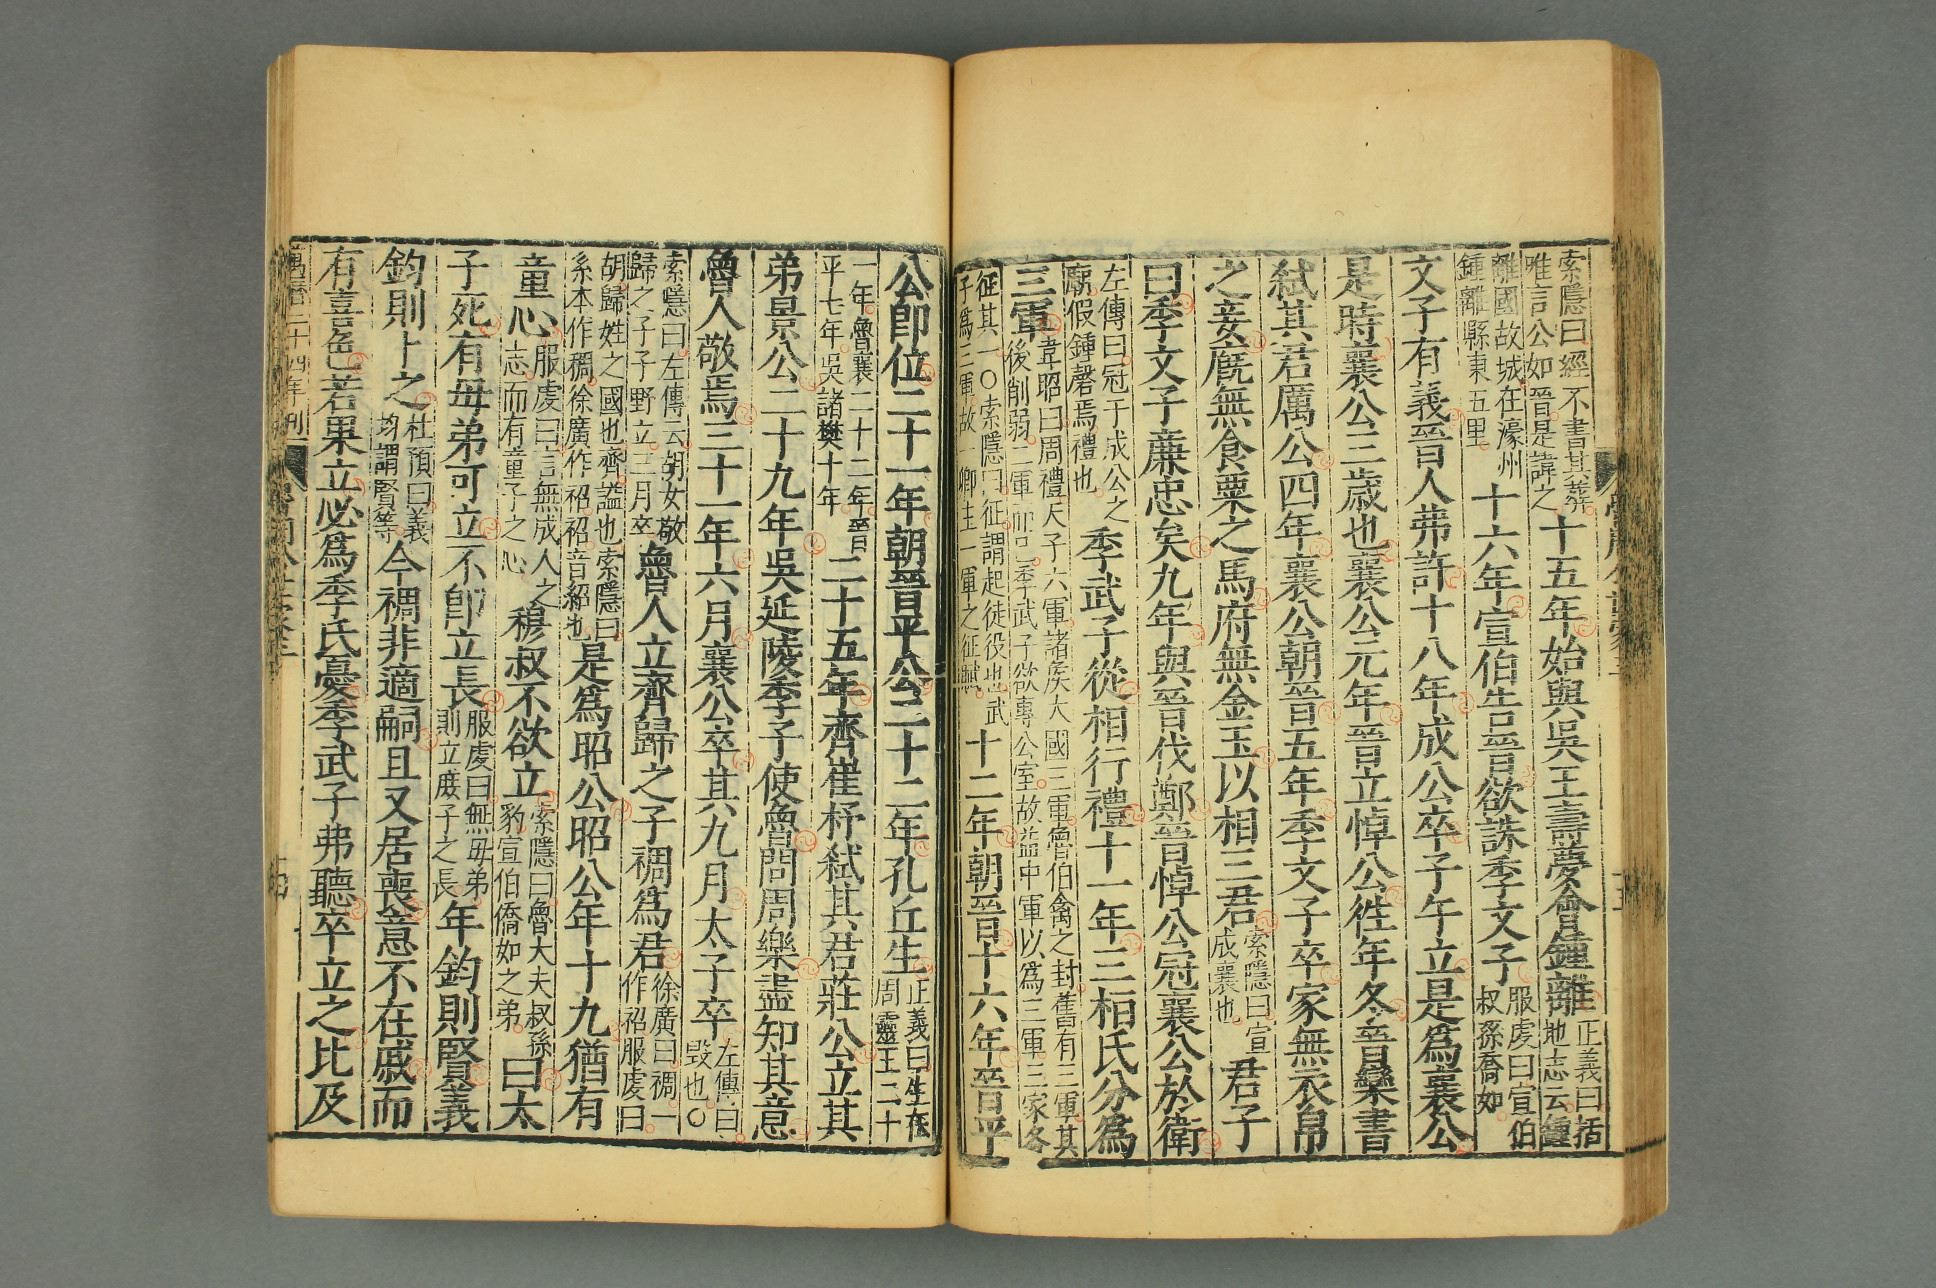 索隱曰經不書其葬
唯言公如晉是諱之
十五年始與吳王壽夢會鍾離
正義曰括
地志云鍾
離國故城在濠州
鍾離縣東五里
十六年宣伯告晉欲誅季文子
服虔曰宣伯
叔孫喬如
文子有義晉人弗許十八年成公卒子午立是爲襄公
是時襄公三歲也襄公元年晉立悼公徃年冬晉欒書
弒其君厲公四年襄公朝晉五年季文子卒家無衣帛
之妾廐無食粟之馬府無金玉以相三君
索隱曰宣
成襄也
君子
曰季文子廉忠矣九年與晉伐鄭晉悼公冠襄公於衛
左傳曰冠于成公之
廟假鍾磬焉禮也
季武子從相行禮十一年三桓氏分爲
三軍
韋昭曰周禮天子六軍諸侯大國三軍魯伯禽之封舊有三軍其
後削弱二軍而已季武子欲專公室故益中軍以爲三軍三家各
征其一〇索隱曰征謂起徒役也武
子爲三軍故一卿主一軍之征賦
十二年朝晉十六年晉平
公卽位二十一年朝晉平公二十二年孔丘生
正義曰生在
周靈王二十
一年魯襄二十二年晉
平七年吳諸樊十年
二十五年齊崔杼弒其君莊公立其
弟景公二十九年吳延陵季子使魯問周樂盡知其意
魯人敬焉三十一年六月襄公卒其九月太子卒
左傳曰
毀也〇
索隱曰左傳云胡女敬
歸之子子野立三月卒
魯人立齊歸之子裯爲君
徐廣曰裯一
作袑服虔曰
胡歸姓之國也齊謚也索隱曰
系本作稠徐廣作袑袑音紹也
是爲昭公昭公年十九猶有
童心
服虔曰言無成人之
志而有童子之心
穆叔不欲立
索隱曰魯大夫叔孫
豹宣伯僑如之弟
曰太
子死有母弟可立不卽立長
服虔曰無母弟
則立庶子之長
年鈞則賢義
鈞則卜之
杜預曰義
均謂賢等
今裯非適嗣且又居喪意不在戚而
有喜色若果立必爲季氏憂季武子弗聽卒立之比及
萬曆二十四年刊